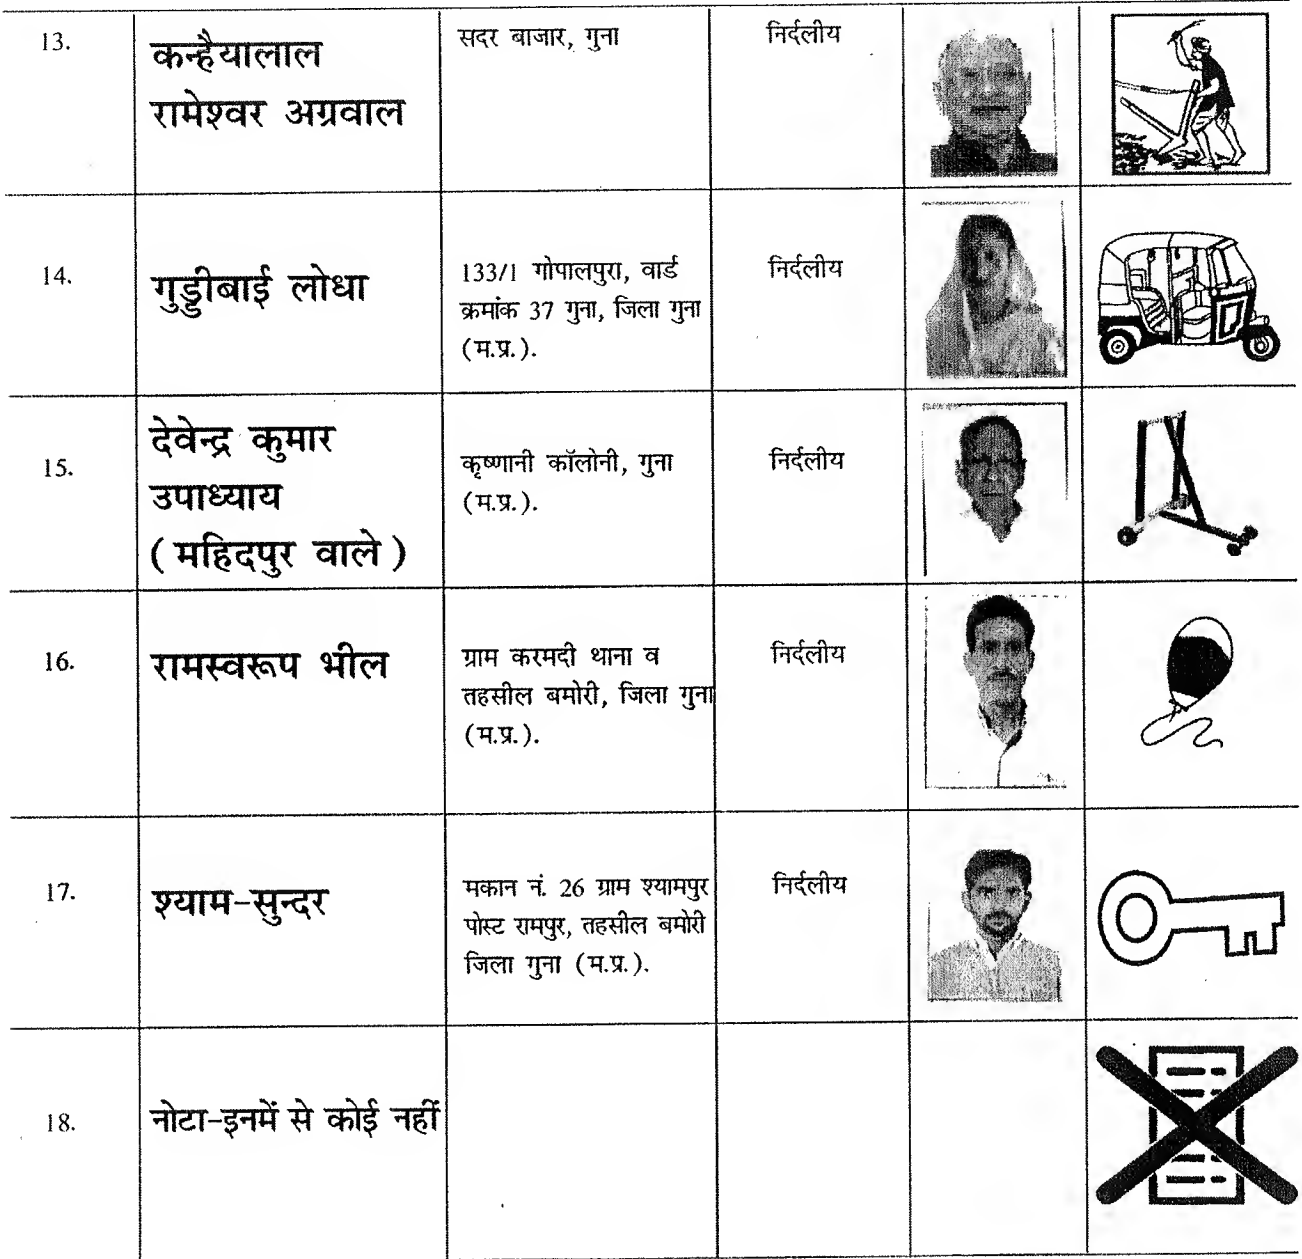 13.
कन्हैयालाल
रामेश्वर अग्रवाल
सदर बाजार, गुना
निर्दलीय
14.
गुड्डीबाई लोधा
133/1 गोपालपुरा, वार्ड
क्रमांक 37 गुना, जिला गुना
(म.प्र.).
निर्दलीय
15.
देवेन्द्र कुमार
उपाध्याय
(महिदपुर वाले)
कृष्णानी कॉलोनी, गुना
(म.प्र.).
निर्दलीय
16.
रामस्वरूप भील
ग्राम करमदी थाना व
तहसील बमोरी, जिला गुना
(म.प्र.).
निर्दलीय
17.
श्याम-सुन्दर
मकान नं. 26 ग्राम श्यामपुर
पोस्ट रामपुर, तहसील बमोरी
जिला गुना (म.प्र.).
निर्दलीय
18.
नोटा-इनमें से कोई नहीं